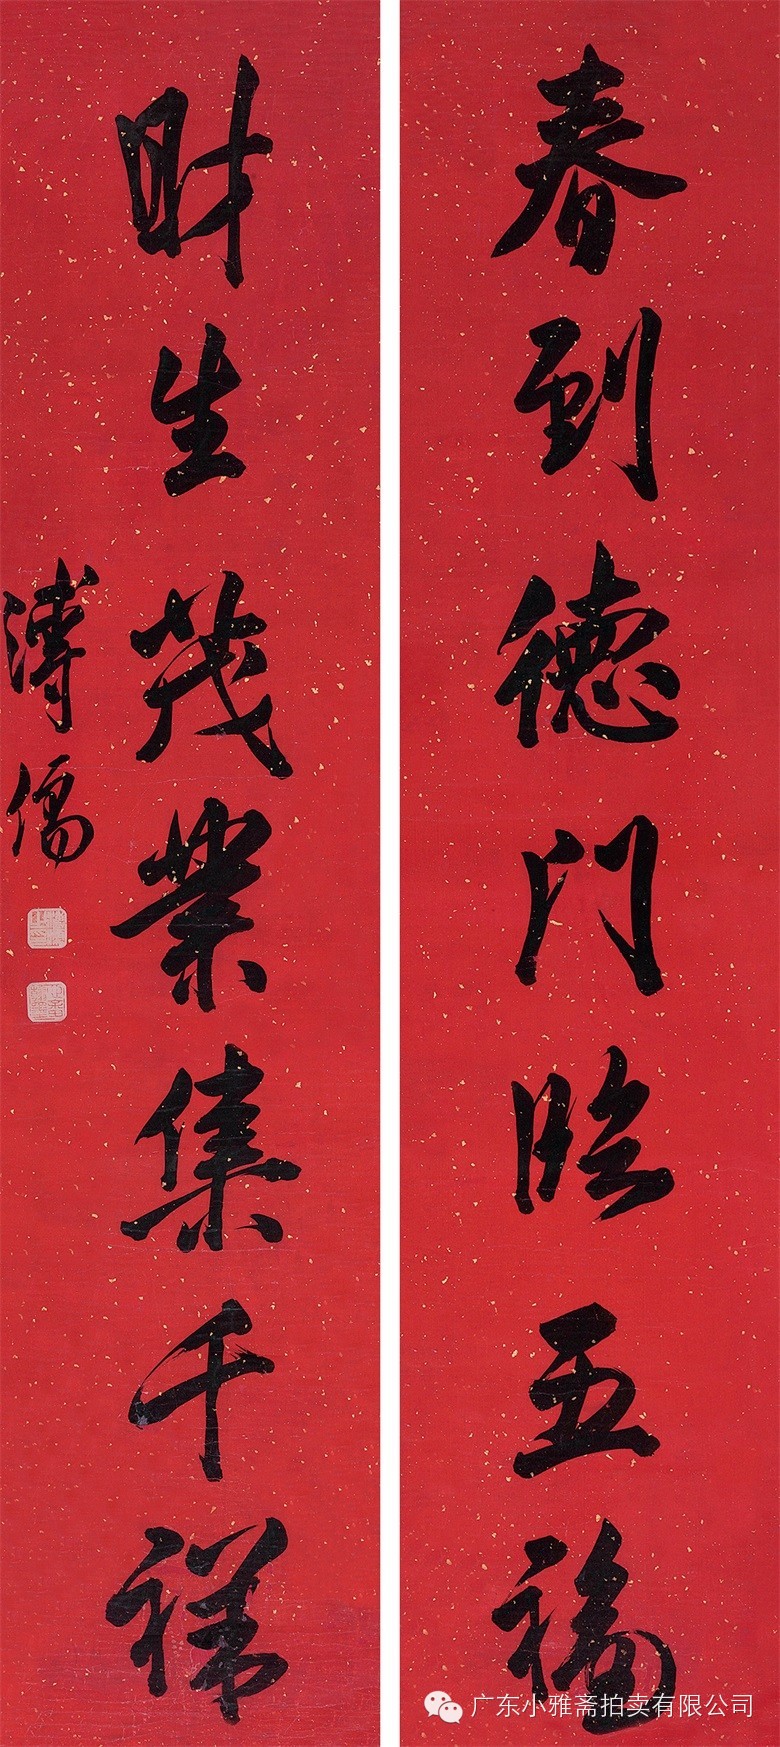 春到德门临五福
财生茂业集千祥
溥儒
广东小雅斋拍卖有限公司